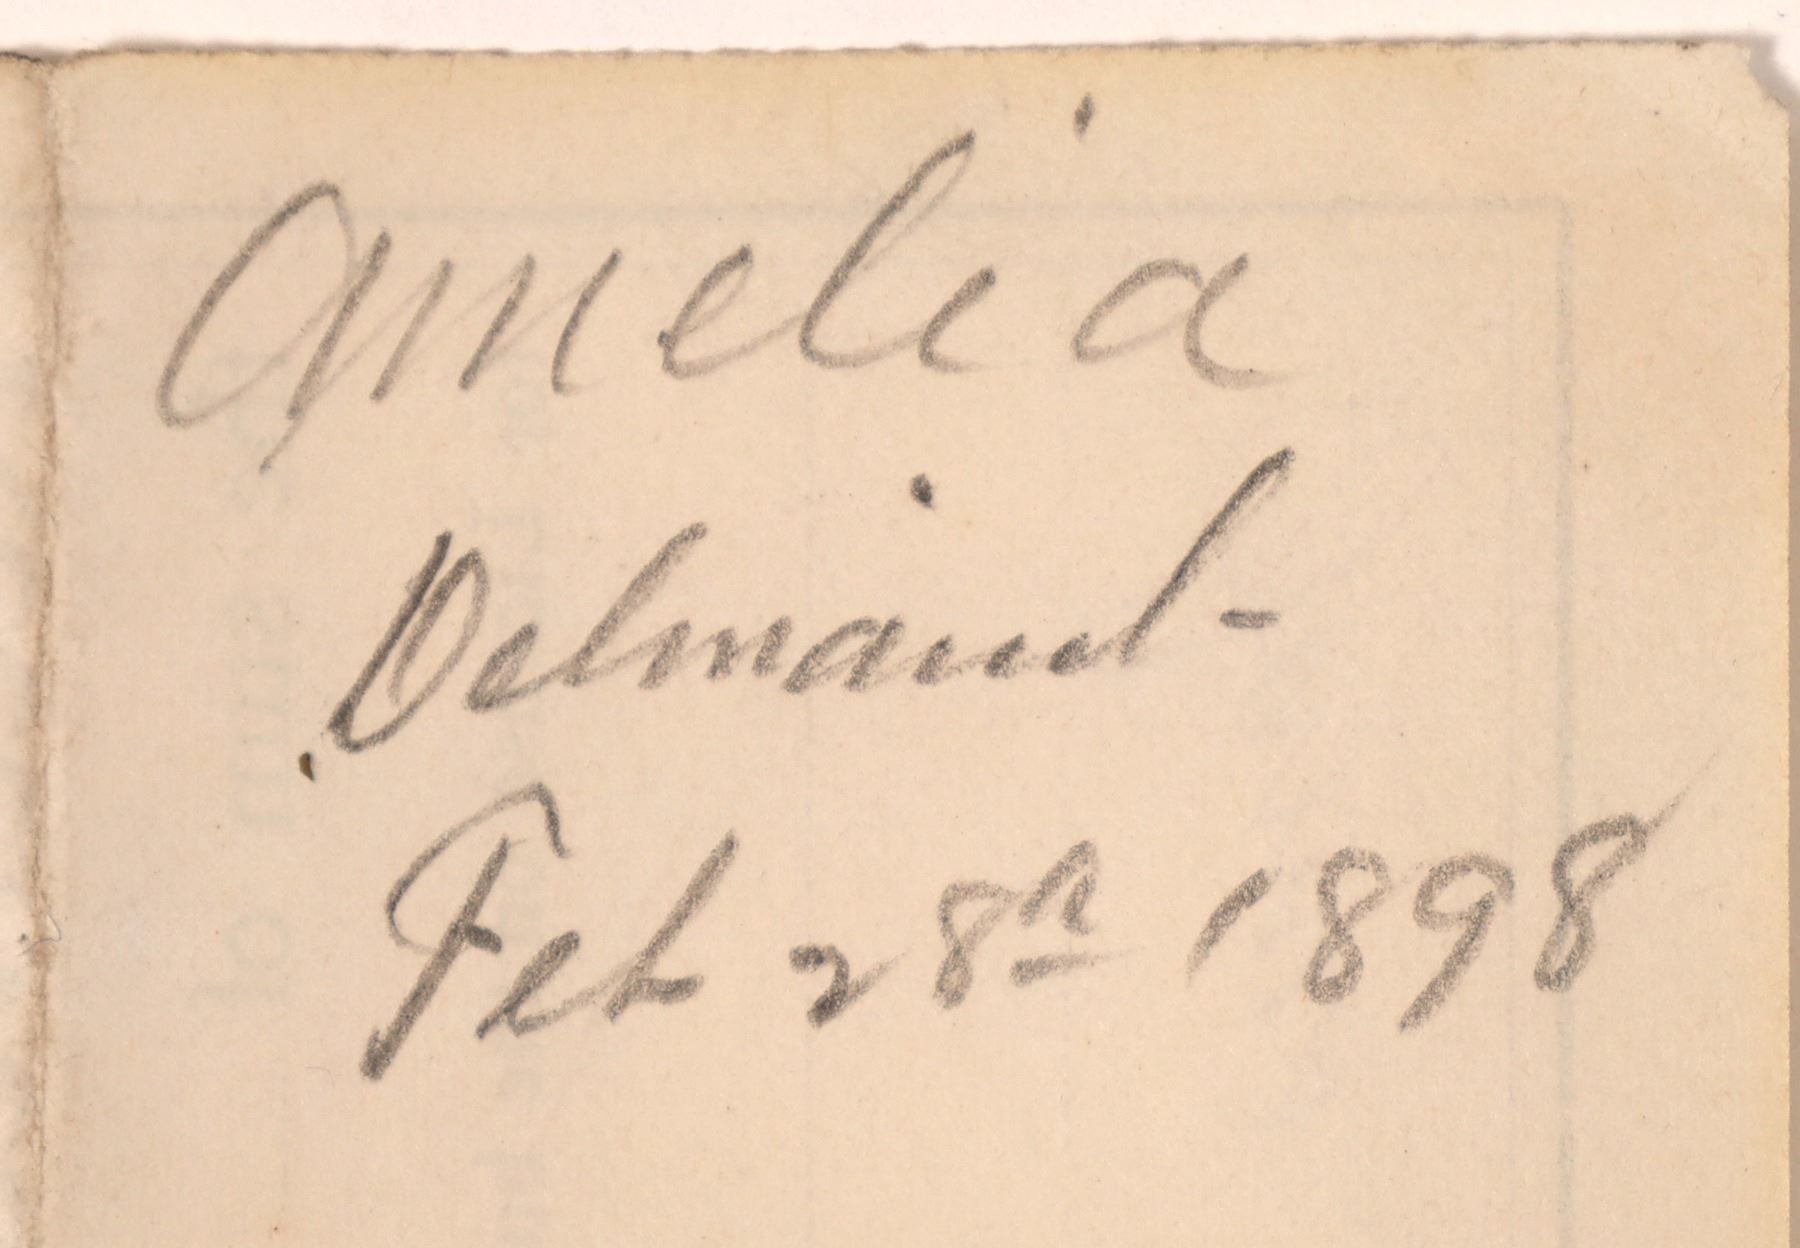 Amelia
Feb 28th 1898